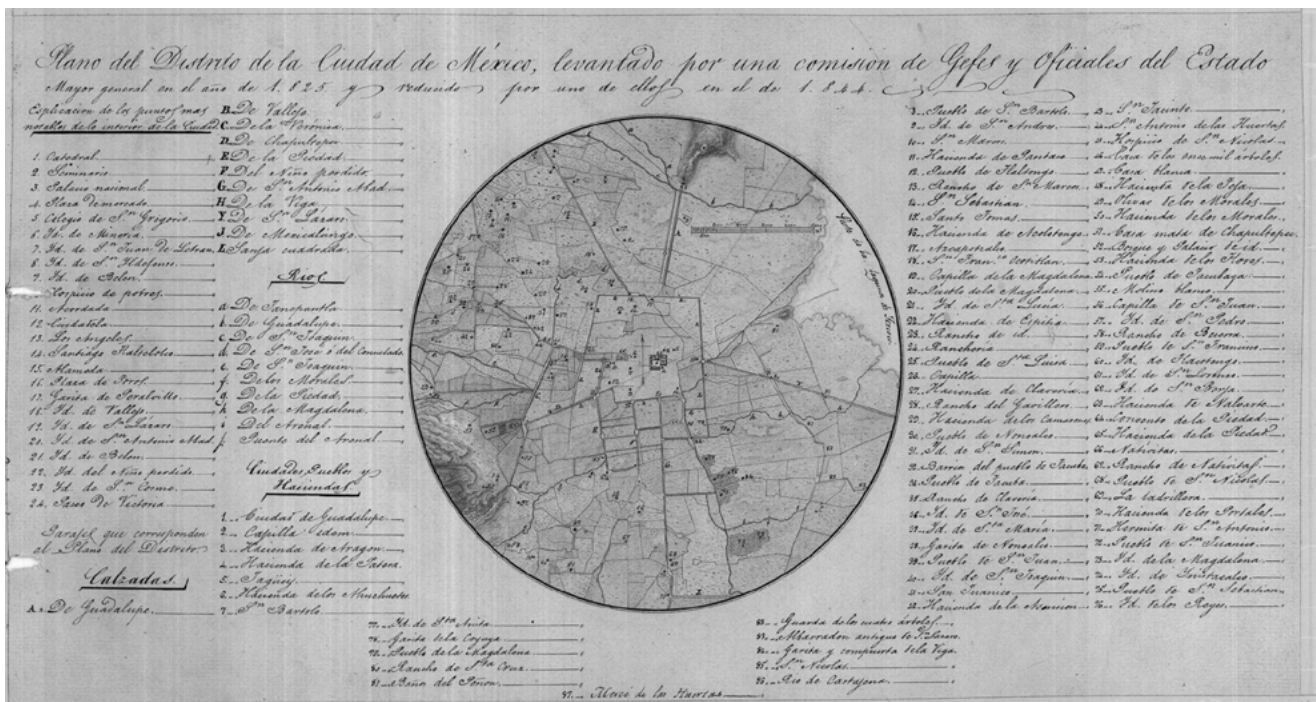 Plano del Distrito de la Ciudad de México, levantado por una comision de Gefes y Oficiales del Estado
Mayor general en el año de 1.825 y reducido por uno de ellos en el de 1.844.
Esplicacion de los puntos mas
notables de lo interior de la Ciudad
1. Catedral.
2. Seminario
3. Palacio nacional
4. Plaza de mercado
5. Colegio de Sn. Grigorio
6. Id. de Mineria
7. Id. de Sn. Juan de Letran
8. Id. de Sn. Ildefonso
9. Id. de Belen
10. Hospicio de pobres
11. Acordada
12. Ciudadela
13. Los Angeles
14. Santiago
15. Alameda
16. Plaza de Toros
17. Garita de Peralvillo
18. Id. de Vallejo
19. Id. de Sn. Lazaro
20. Id. de Sn. Antonio Abad
21. Id. de Belen
22. Id. del Niño perdido
23. Id. de Sn. Cosme
24. Paseo De Victoria
que corresponden
al Plano del Distrito
Calzadas.
A. De Guadalupe
B. De Vallejo
C. De la Verónica
D. De Chapultepec
E. De la Piedad
F. Del Niño perdido
G. De Sn. Antonio Abad
H. De la Viga
Y. De Sn. Lázaro
J. De Mexicalcingo
L. Sanja cuadrada
Rios
a. De Tanepantla
b. De Guadalupe
c. De Sn. Joaquin
d. De Sn. José ó del Consulado
e. De Sn. Joaquin
f. De los Morales
g. De la Piedad
h. De la Magdalena
i. Del Arenal
j. Puente del Arenal
Ciudades, Pueblos y
Haciendas
1. Ciudad de Guadalupe
2. Capilla idem
3. Hacienda de Aragon
4. Hacienda de la Patera
6. Hacienda de los Ahuehuetes
7. Sn. Bartolo
Parte de la laguna de Tescoco
8. Pueblo de Sn. Bartolo
9. Id. de Sn. Andres
10. Sn. Marcos
11. Hacienda de Pantaco
12. Pueblo de
13. Rancho de Sta. Maria
14. Sn. Sebastian
15. Santo Tomas
16. Hacienda de
17. Azcapozalco
18. Sn. Franco.
19. Capilla de la Magdalena
20. Pueblo de la Magdalena
21. Id. de Sta. Lucia
22. Hacienda de
23. Rancho de id.
24. Rancheria
25. Pueblo de Sta. Luisa
26. Capilla
27. Hacienda de Claveria
28. Rancho del Gavillero
29. Hacienda de los Camarones
30. Pueblo de Nonoalco
31. Id. de Sn. Simon
32. Barrio del pueblo de Tacuba
34. Pueblo de Tacuba
35. Rancho de Claveria
36. Id. de Sn. José
37. Id. de Sta. Maria
38. Garita de Nonoalco
39. Pueblo de Sn. Juan
40. Id. de Sn. Joaquin
41. San Juanico
42. Hacienda de la Ascension
43. Sn. Jacinto
44. Sn. Antonio de las Huertas
45. Hospicio de Sn. Nicolas
46. Casa de los once mil árboles
47. Casa blanca
48. Hacienda de la Teja
49. de los Morales
50. Hacienda de los Morales
51. Casa mata de Chapultepec
52. Bosque y Palacio de id.
53. Hacienda de los
54. Pueblo de Tacubaya
55. Molino blanco
56. Capilla de Sn. Juan
57. Id. de Sn. Pedro
58. Rancho de Becerra
59. Pueblo de Sn. Francisco
60. Id. de
61. Id. de Sn. Lorenzo
62. Id. de Sn. Borja
63. Hacienda de Nalvarte
64. Convento de la Piedad
65. Hacienda de la Piedad
66. Nativitas
67. Rancho de Nativitas
68. Pueblo de Sn. Nicolas
69. La Ladrillera
70. Hacienda de los Portales
71. Hermita de Sn. Antonio
72. Pueblo de Sn. Juanico
73. Id. de la Magdalena
74. Id. de
75. Pueblo de Sn. Sebastian
76. Id. de los Reyes
77. Id. de Sta. Anita
78. Garita de la Coyuya
79. Pueblo de la Magdalena
80. Rancho de Sta. Cruz
81. Baños del Peñon
82. Guarda de los cuatro árboles
83. Albarradon antiguo de Sn. Lázaro
84. Garita y compuerta de la Viga
85. Sn. Nicolas
86. Rio de Cartagena
87. Merced de las Huertas